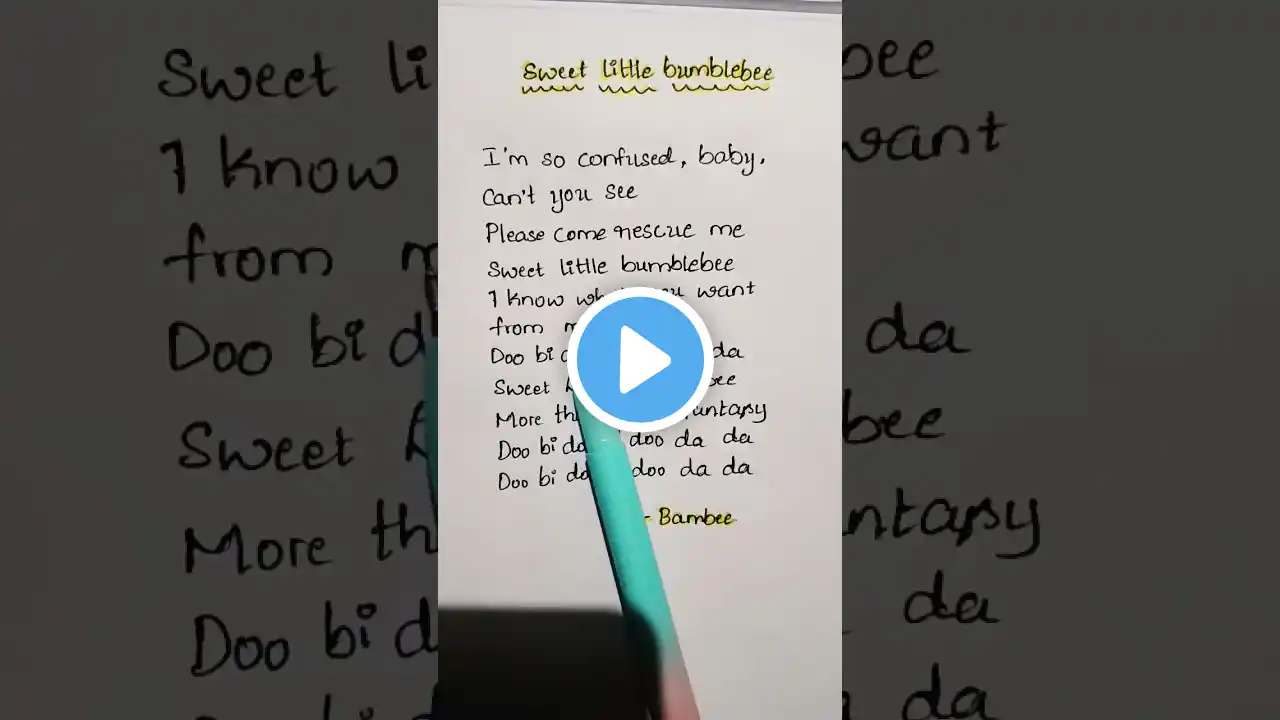 Sweet little bumblebee
I'm so confused, baby,
Can't you see
Please come rescue me
Sweet little bumblebee
I know want
from
Doo bi da
Sweet
More
Doo bi doo da da
Doo bi doo da da
- Bambee